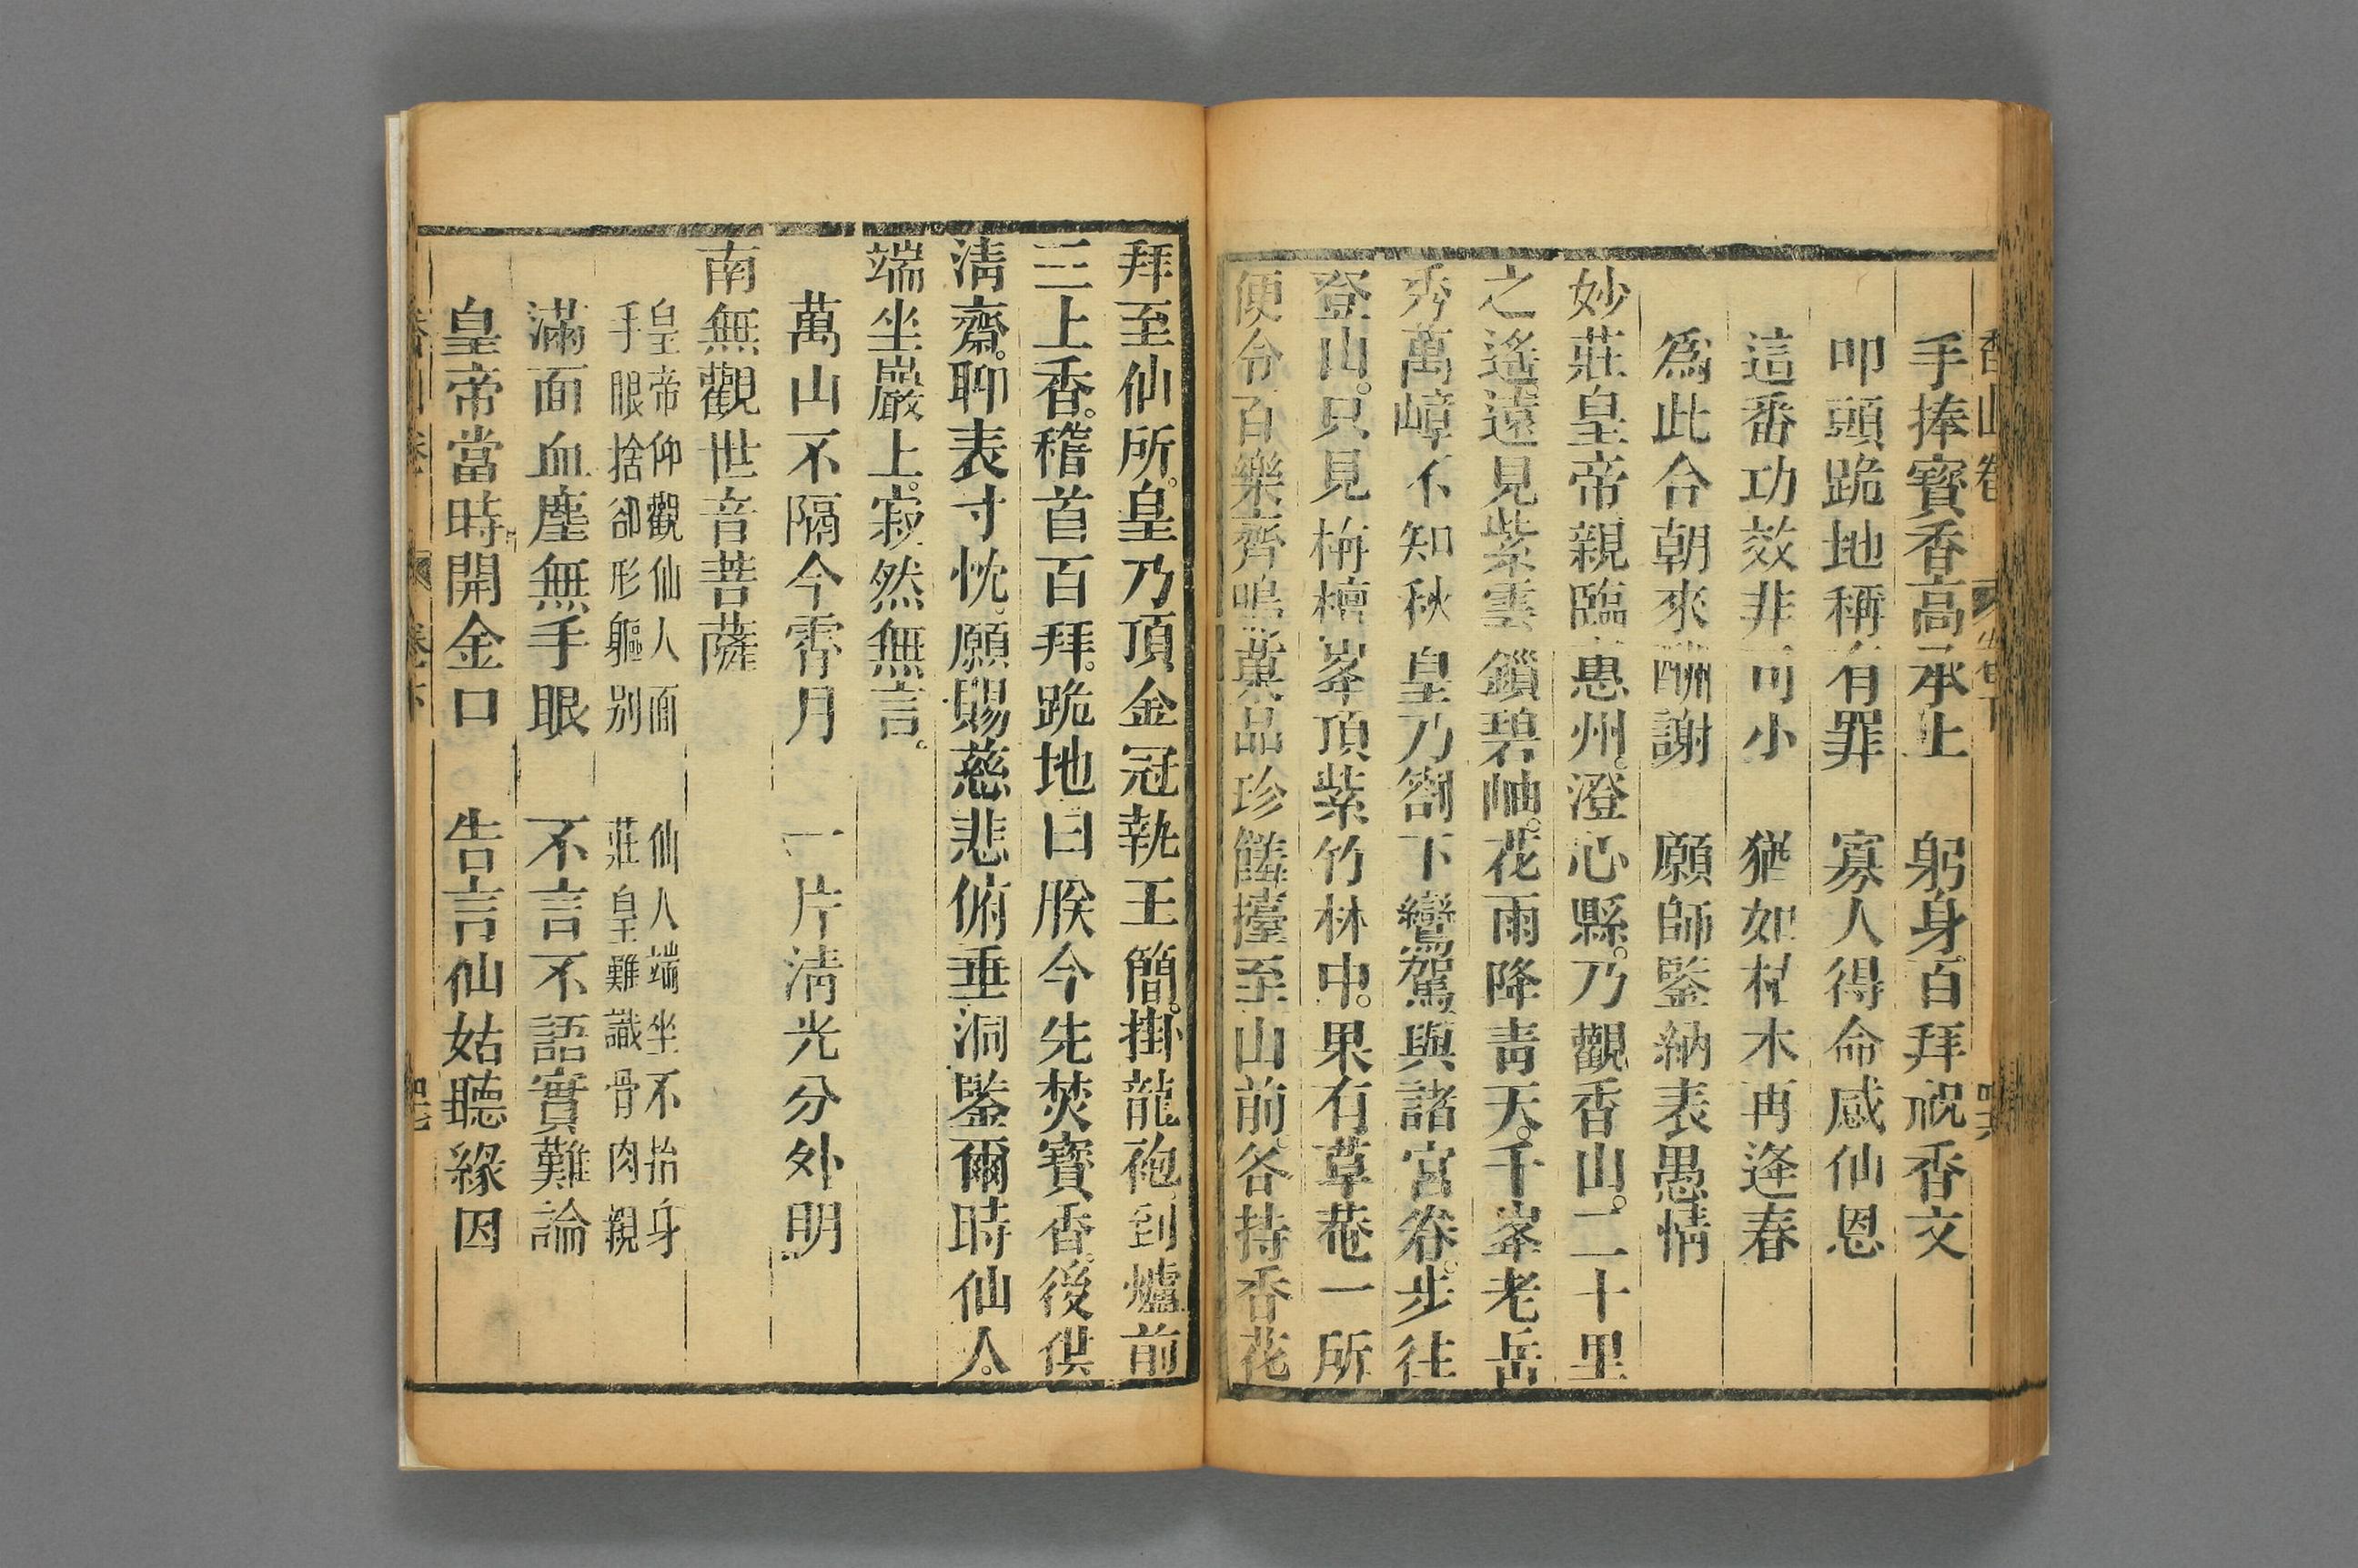 香山卷
手捧寶香高承上　躬身百拜祝香文
叩頭跪地稱有罪　寡人得命感仙恩
這番功效非可小　猶如枯木再逢春
爲此合朝來酬謝　願師鑒納表愚情
妙莊皇帝親臨惠州。澄心縣。乃觀香山。二十里
之遙。遠見紫雲鎖碧岫。花雨降青天。千峯老岳
秀萬嶂不知秋皇乃劄下鸞駕與諸宮眷。步往
登山。只見栴檀峯頂紫竹林中。果有草菴一所
便令百樂齊鳴菓品珍饈擡至山前。各持香花
拜至仙所。皇乃頂金冠執王簡。掛龍袍到爐前
三上香。稽首百拜。跪地曰朕今先焚寶香。後供
淸齋。聊表寸忱。願賜慈悲俯垂洞鑒爾時仙人。
端坐巖上。寂然無言。
萬山不隔今霄月　一片淸光分外明
南無觀世音菩薩
皇帝仰觀仙人面　仙人端坐不抬身
手眼捨卻形軀別　莊皇難識骨肉親
滿面血塵無手眼　不言不語實難論
皇帝當時開金口　告言仙姑聽緣因